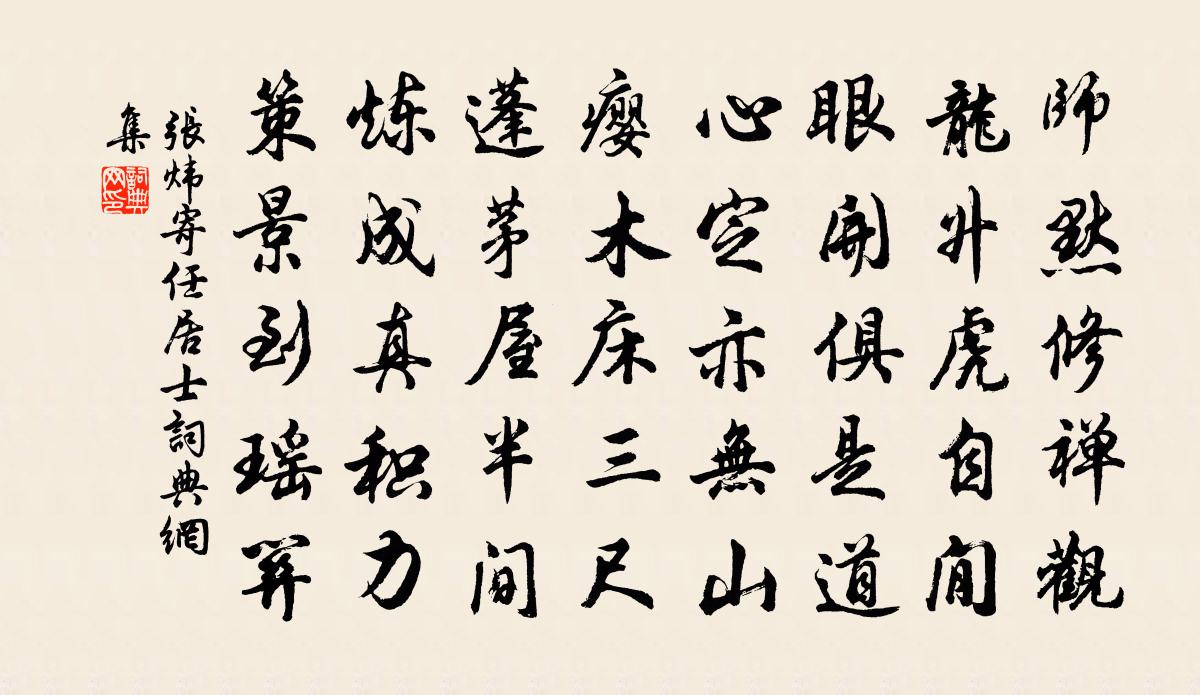 師默修禅觀
龍升虎自閒
眼開俱是道
心定亦無山
癭木床三尺
蓬茅屋半間
炼成真积力
策景到瑶關
張炜寄任居士詞典網
集
詞典
网印